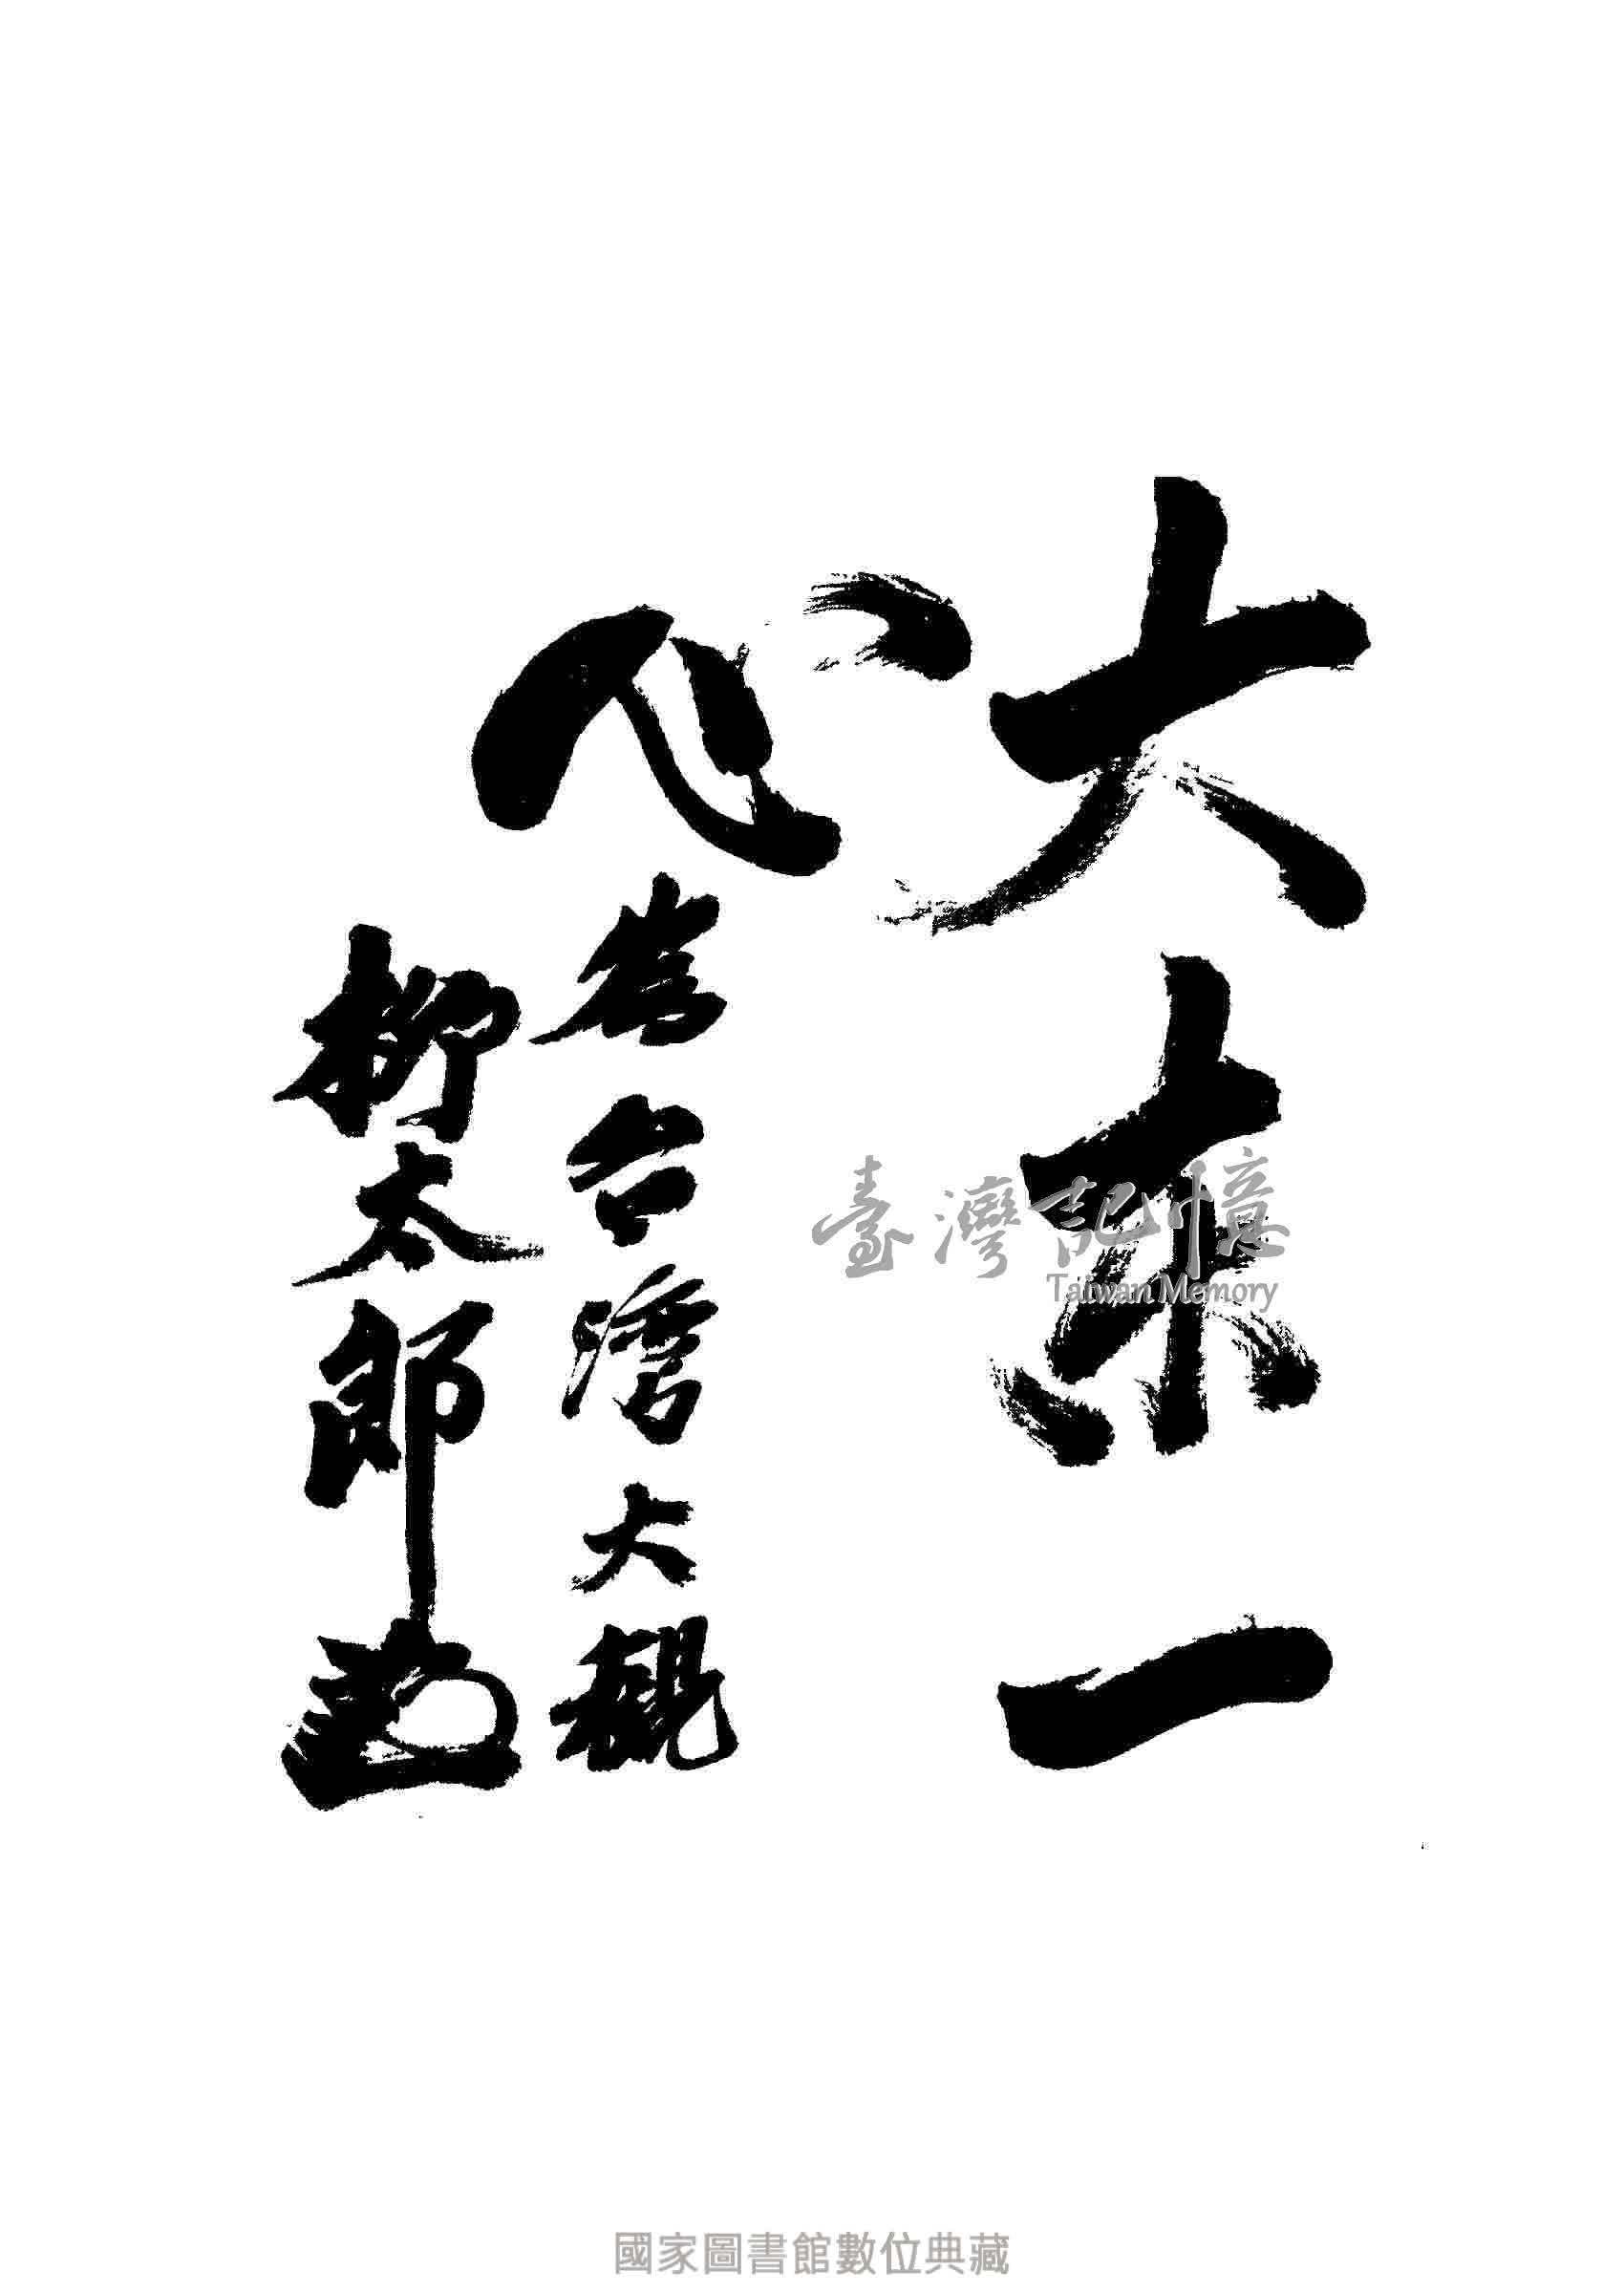 大東一
心
為台湾大観
柳太郎
臺灣記憶
Taiwan Memory
國家圖書館數位典藏